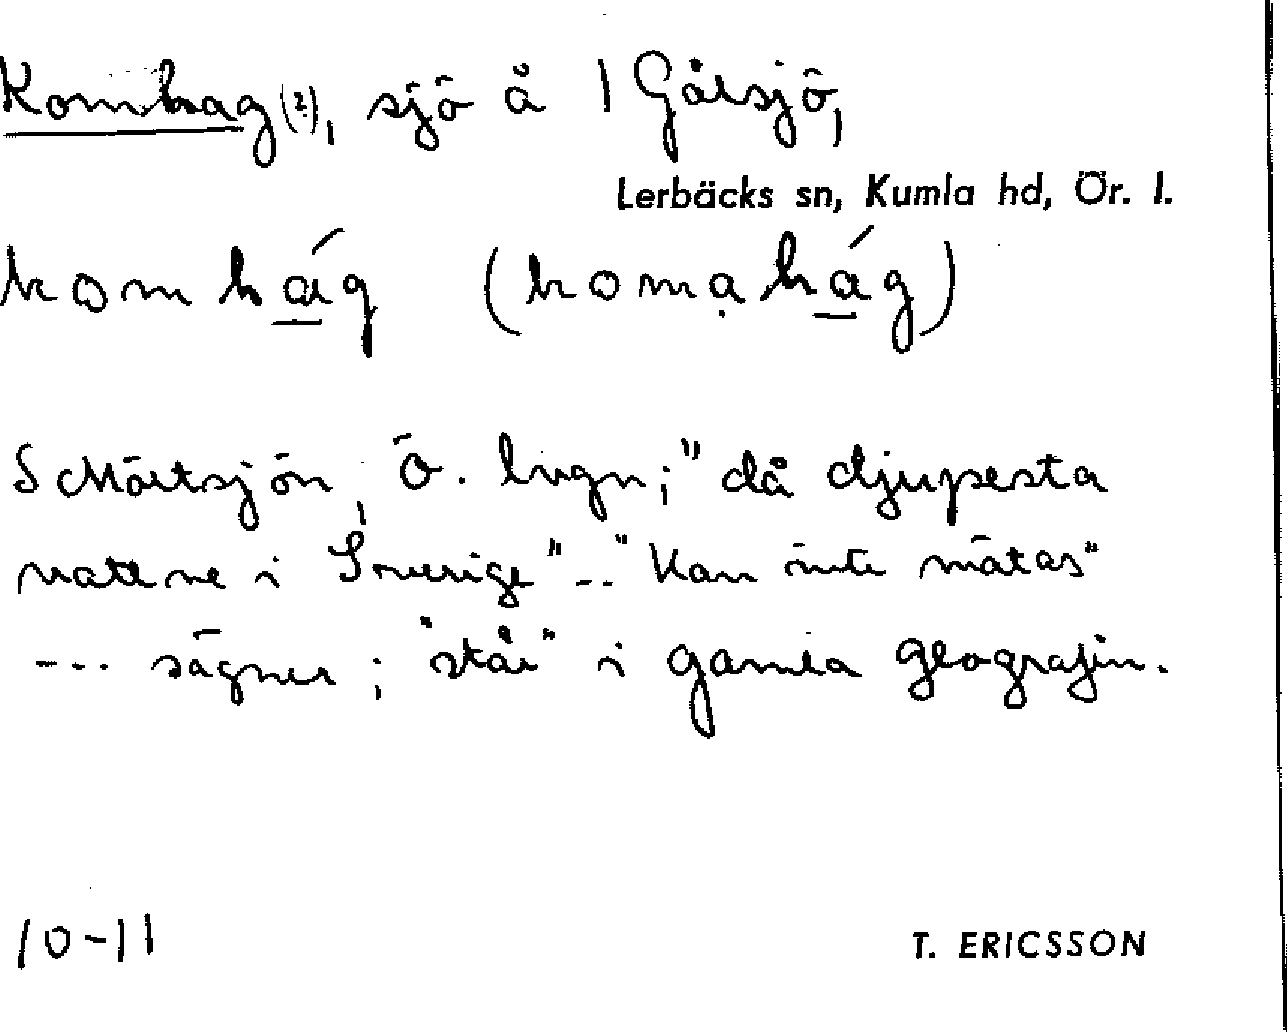 Komhag(?), sjö å 1 Gålsjö,
Lerbäcks sn, Kumla hd, Ör. l.
komhág (komạhág)
S Mörtsjön, Ö. lugn; "då djupesta
vattne i Sverige" -.. "Kan inte mätas"
--.. sägner; "står" i gamla geografin.
10-11
T. ERICSSON